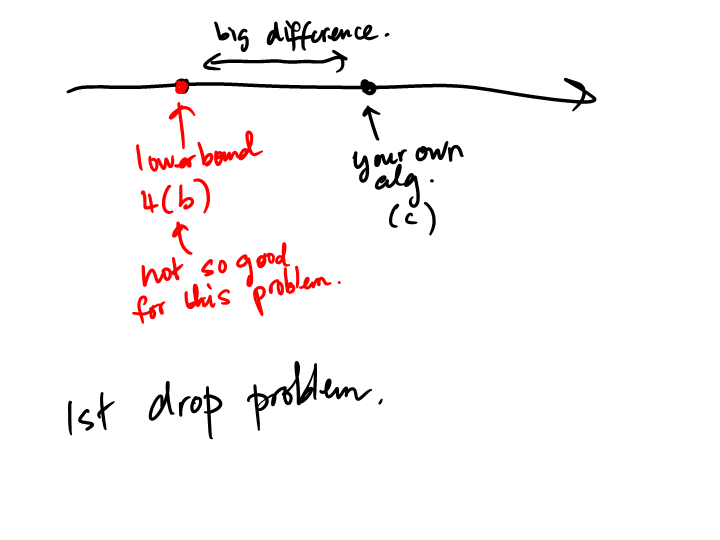 big difference.
lowerbound
4(b)
not so good
for this problem.
your own
alg.
(c)
1st drop problem.